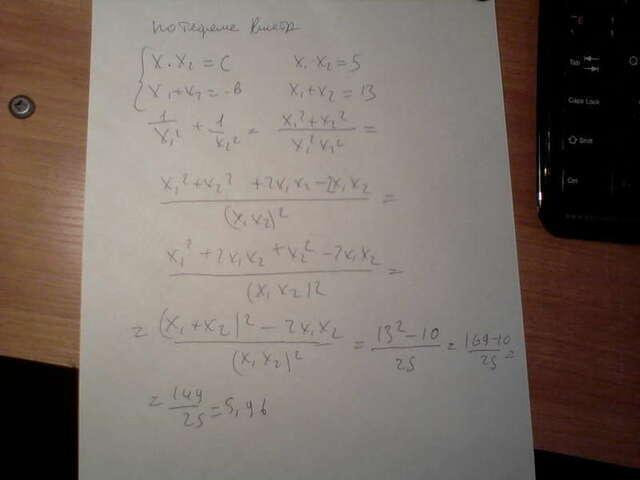 по теореме Виета
x₁·x₂ = c x₁·x₂ = 5
x₁+x₂ = -в x₁+x₂ = 13
1/x₁² + 1/x₂² = (x₁²+x₂²)/(x₁²x₂²) =
(x₁²+x₂² +2x₁x₂-2x₁x₂)/(x₁x₂)² =
(x₁²+2x₁x₂+x₂²-2x₁x₂)/(x₁x₂)2 =
= ((x₁+x₂)²-2x₁x₂)/(x₁x₂)² = (13²-10)/25 = (169-10)/25 =
= 149/25 = 5,96
Tab
Caps Lock
Shift
Ctrl